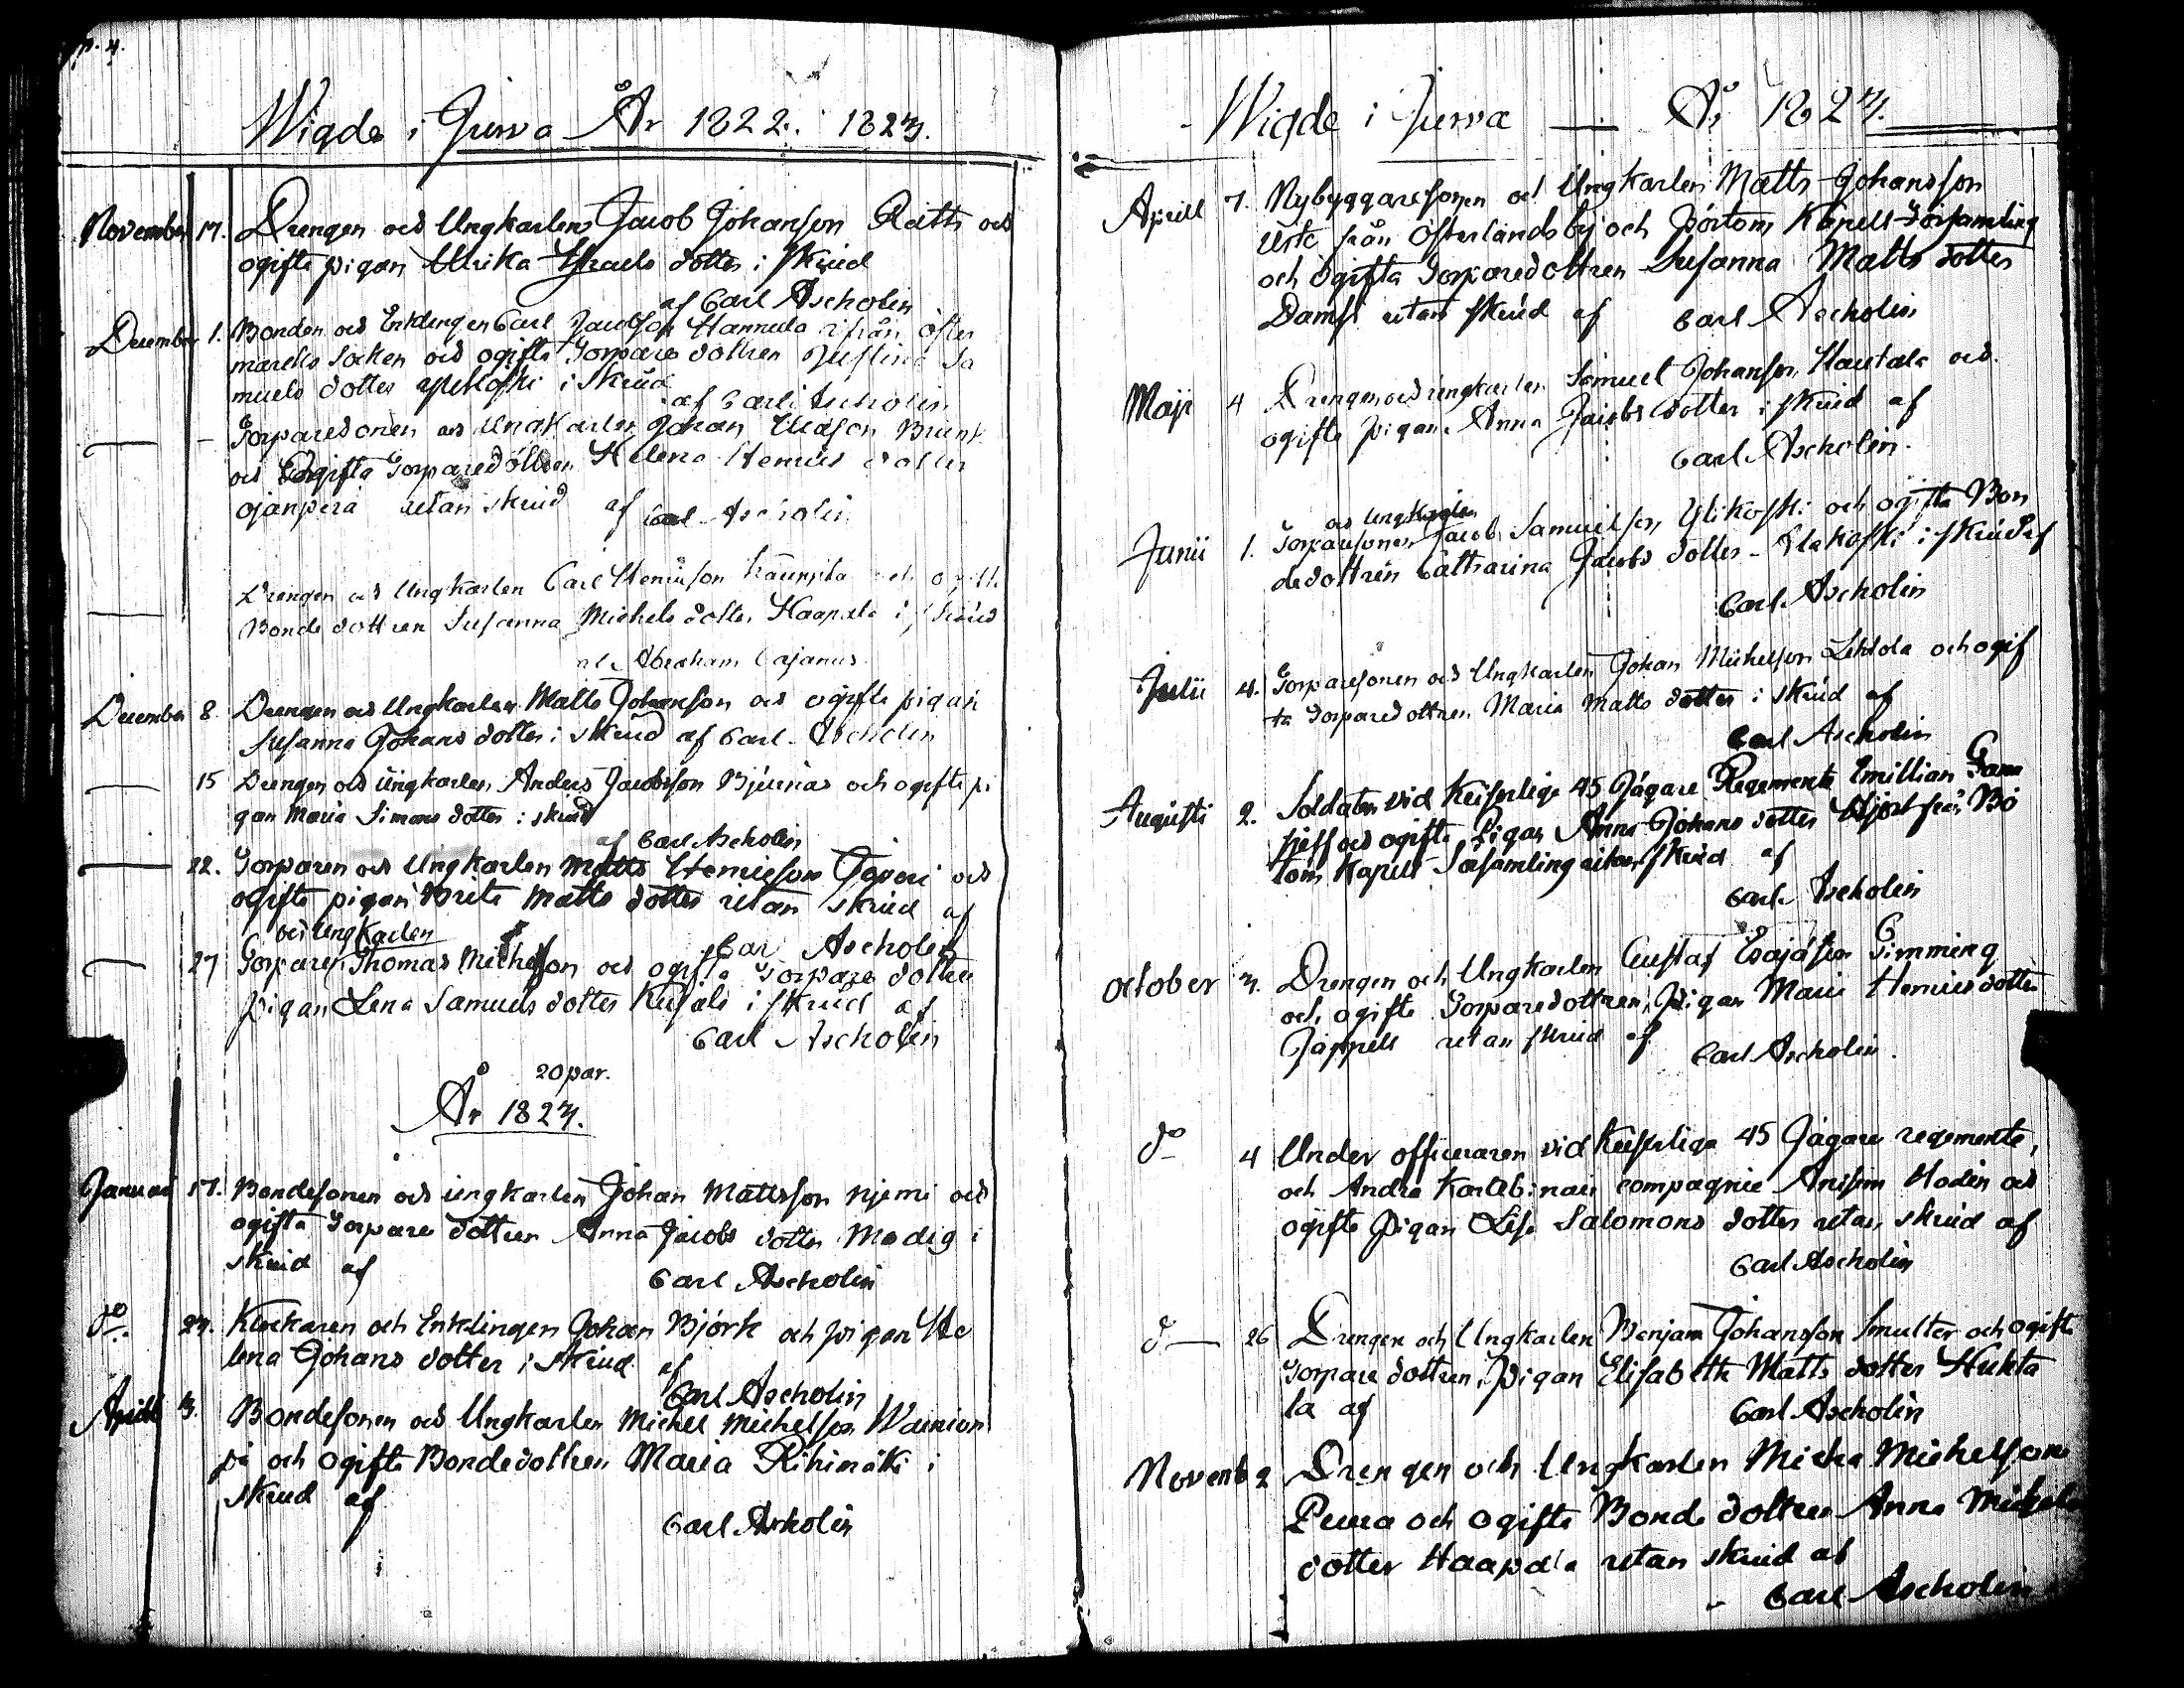 p. 4.
Wigde i Jurva År 1822. 1823.
November 17. Drengen och Ungkarlen Jacob Johanson Rätts och
ogifta pigan Ulrika Israels dotter i skrud
af Carl Ascholin
December 1. Bonden och Enklingen Carl Jacobson Hannula ifrån öster
marks Socken och ogifta Torpare dottren Justina Sa
muels dotter ylikoski i skrud
af Carl Ascholin
— – Torparesonen och Ungkarlen Johan Eliason Brunk
och Ogifta Torparedottren Helena Henrics dotter
ojanperä utan skrud af Carl Ascholin
— Drengen och Ungkarlen Carl Henricson och ogifta
Bonde dottren Susanna Michels dotter Haapala i skrud
af Abraham Cajanus
December 8. Drengen och Ungkarlen Matts Johanson och ogifta pigan
Susanna Johans dotter i skrud af Carl Ascholin
— 15 Drengen och ungkarlen Anders Jacobsson Björnäs och ogifta pi
gan Maria Simons dotter i skrud
af Carl Ascholin
— 22. Torparen och Ungkarlen Matts Henricson och
ogifta pigan Brita Matts dotter utan skrud af
Carl Ascholin
och Ungkarlen
— 27 Torparen Thomas Michelson och ogifta Torpare dottren
pigan Lena Samuels dotter i skrud af
Carl Ascholin
20 par.
År 1823.
Januari 17. Bondesonen och ungkarlen Johan Mattsson njemi och
ogifta Torpare dottren Anna Jacobs dotter Modig i
skrud af
Carl Ascholin
do. 23. Klockaren och Enklingen Johan Björk och pigan He
lena Johans dotter i skrud af
Carl Ascholin
Aprill 3. Bondesonen och Ungkarlen Michel Michelson Wainion
pä och ogifta Bondedottren Maria Rihimäki i
skrud af
Carl Ascholin
Wigde i Jurva — År 1823.
Aprill 7. Nybyggaresonen och Ungkarlen Matts Johansson
från Österlandsby och Pörtom Kapell-Församling
och ogifta Torparedottren Susanna Matts dotter
Damsk utan skrud af Carl Ascholin
Maji 4 Drengen och ungkarlen Samuel Johanson Hautala och
ogifta pigan Anna Jacobs dotter i skrud af
Carl Ascholin.
och Ungkarlen
Junii 1. Torparesonen Jacob Samuelson Ylikoski och ogifta Bon
dedottren Catharina Jacobs dotter Alakoski i skrud af
Carl Ascholin
Julii 4. Torparesonen och Ungkarlen Johan Michelson Lehtola och ogif
ta Torparedottren Maria Matts dotter i skrud af
Carl Ascholin
Augusti 2. Soldaten vid Keiserliga 45 Jägare Regemente Emillian
och ogifta Pigan Anna Johans dotter Hjort från Pör
tom Kapell Församling utan skrud af
Carl Ascholin
October 3. Drengen och Ungkarlen Gustaf Esajason Timming
och ogifta Torparedottren, Pigan Maria Henricsdotter
Jäppell utan skrud af
Carl Ascholin.
do 4 Under officeraren vid Keiserliga 45 Jägare regemente,
och Andra Karabinair compagnie Anisim Hodin och
ogifta Pigan Lisa Salomons dotter utan skrud af
Carl Ascholin
d— 26 Drengen och Ungkarlen Benjam Johansson Smulter och ogifta
Torpare dottren, Pigan Elisabeth Matts dotter Huhta
la af
Carl Ascholin
Novemb 2 Drengen och Ungkarlen Micha Michelson
Peura och ogifta Bonde dottren Anna Michels
dotter Haapala utan skrud af
Carl Ascholin